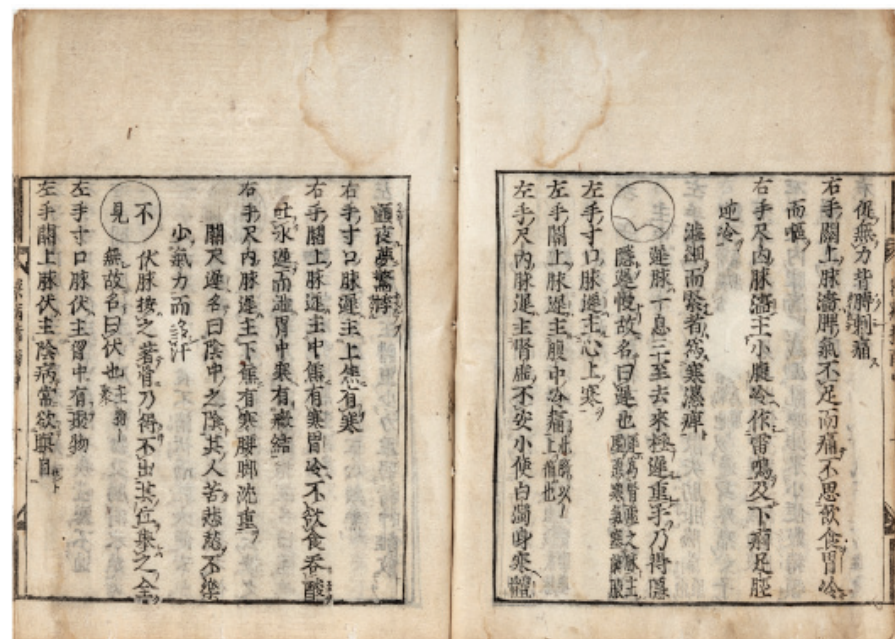 促無力背膊刺痛
右手關上脉濇脾氣不足而痛不思飲食胃冷
而嘔
右手尺內脉濇主小腹冷作雷鳴及下痢足脛
逆冷
濇細而緊者爲寒濕痺
遲脉一息三至去來極遲重手乃得隱
隱遲慢故名曰遲也
左手寸口脉遲主心上寒
左手關上脉遲主腹中冷痛
左手尺內脉遲主腎虛不安小便白濁身寒體
右手寸口脉遲主上焦有寒
右手關上脉遲主中焦有寒胃冷不飲食吞酸
吐水遲而濇胃中寒有癥結
右手尺內脉遲主下焦有寒腰脚沈重
關尺遲名曰陰中之陰其人苦悲愁不樂
少氣力而多汗
不見
伏脉按之著骨乃得不出其位舉之全
無故名曰伏也
左手寸口脉伏主胷中有聚物
左手關上脉伏主陰病常欲瞑目